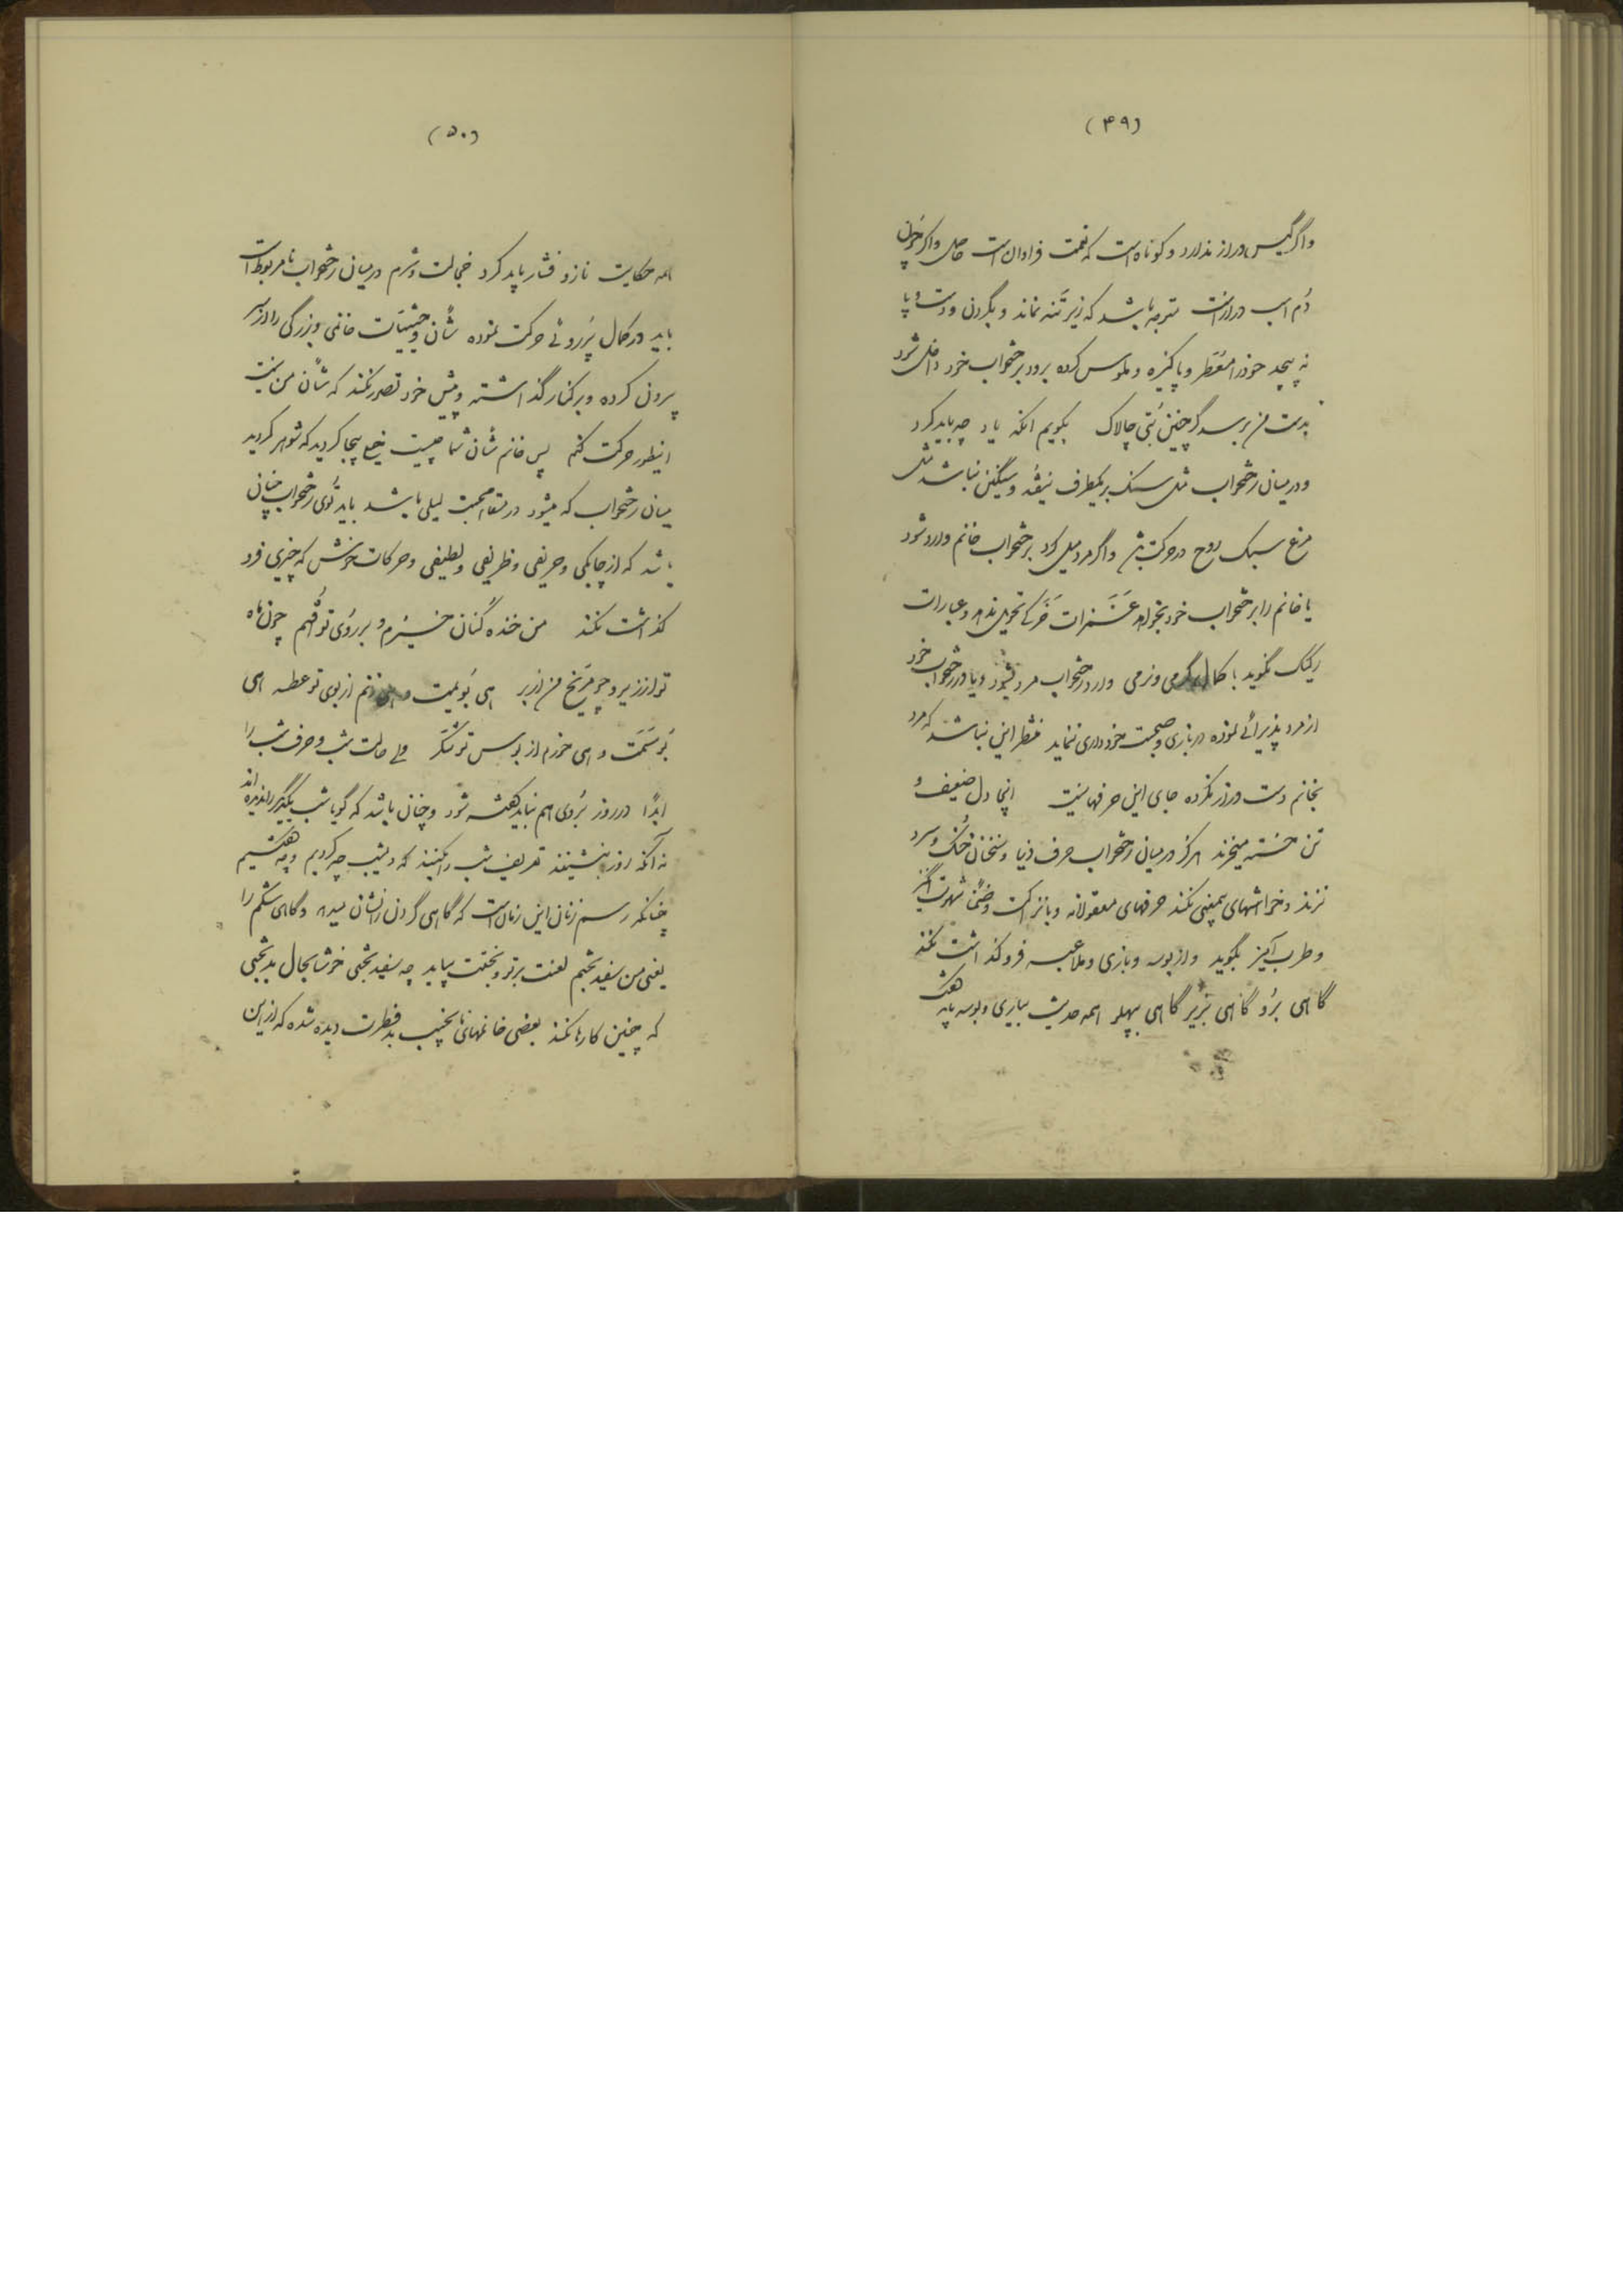 (۴۹)
واگر گیس دراز ندارد و کوتاه است که نعمت فراوان است حاصل واگر چون
دُم اسب دراز است متوجه باشد که زیر تنه نماند و بگردن و دست و پا
نه پیچد خود را معَطر و پاکیزه و ملبوس کرده برود برختخواب خود داخل شود
بدست من برسد گر چنین بُتی چالاک بگویم آنکه یاد چه باید کرد
و در میان رختخواب مثل سنگ بریکطرف نیفتد و سنگین نباشد مثل
مرغ سبک روح در حرکت باشد واگر مرد میل کرد برختخواب خانم وارد شود
یا خانم را برختخواب خود بخواهد تحویل ندهد و عبارات
رکیک نگوید با کمال گرمی و نرمی وارد رختخواب مرد شود و یا در رختخواب خود
از مرد پذیرائی نموده در بازی و صحبت خودداری ننماید منتظر این نباشد که مرد
بخانم دست دراز نکرده جای این حرفها نیست اینجا دل ضعیف و
تن خسته میخرند هرگز در میان رختخواب حرف دنیا و سخنان خُنک و سرد
نزند و خراشهای بیمعنی نکند حرفهای معقولانه و با نزاکت و ضمناً شهوت انگیز
و طرب آمیز بگوید و از بوسه و بازی و ملاعبه فروگذاشت نکند
گاهی برُو گاهی بزیر گاهی بپهلو همه حدیث بیاری و بوسه باید هشت
(۵۰)
همه حکایت ناز و فشار باید کرد خجالت و شرم در میان رختخواب نامربوط است
باید در کمال پُرروئی حرکت نموده شأن و حیثیّات خانمی و بزرگی را از سر
بیرون کرده و بر کنار گذاشته و پیش خود تصور نکند که شأن من نیست
اینطور حرکت کنم پس خانم شأن شما چیست خیلی بیجا کردید که شوهر کردید
میان رختخواب که میشود در مقام محبت لیلی باشد باید توی رختخواب چنان
باشد که از چابکی و حریفی و ظریفی و لطیفی و حرکات خوش که چیزی فرو
گذاشت نکند من خنده کُنان خیزم و بر روی تو اُفتم چون ماه
تو از زیر و چو مریخ من از بر هی بُویمت و هی زنم از بوی تو عطسه هی
بُوسَمَت و هی خورم از بوس تو شکر ولی حالت شب و حرف شب را
ابداً در روز بُروی هم نباید هشته شود و چنان باشد که گویا شب یکدیگر را ندیده اند
نه آنکه روز بنشینند تعریف شب را بکنند که دیشب چه کردیم و چه هشتیم
چنانکه رسم زنان این زمان است که گاهی گردن را نشان میدهد و گاهی شکم را
یعنی من سفید بختم لعنت بر تو و بختت بیاید چه سفید بختی خوشا بحال بدبختی
که چنین کارها نکند بعضی خانمهای نانجیب بد فطرت دیده شده که از این